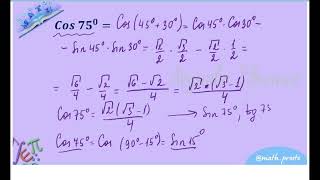 Cos 75⁰ = Cos (45⁰ + 30⁰) = Cos 45⁰ · Cos 30⁰ −
− Sin 45⁰ · Sin 30⁰ = √2/2 · √3/2 − √2/2 · 1/2 =
= √6/4 − √2/4 = (√6 − √2)/4 = √2 · (√3 − 1)/4
Cos 75⁰ = √2(√3 − 1)/4 → Sin 75⁰, tg 75
Cos 45⁰ = Cos (90⁰ − 15⁰) = Sin 15⁰
@math_prosto